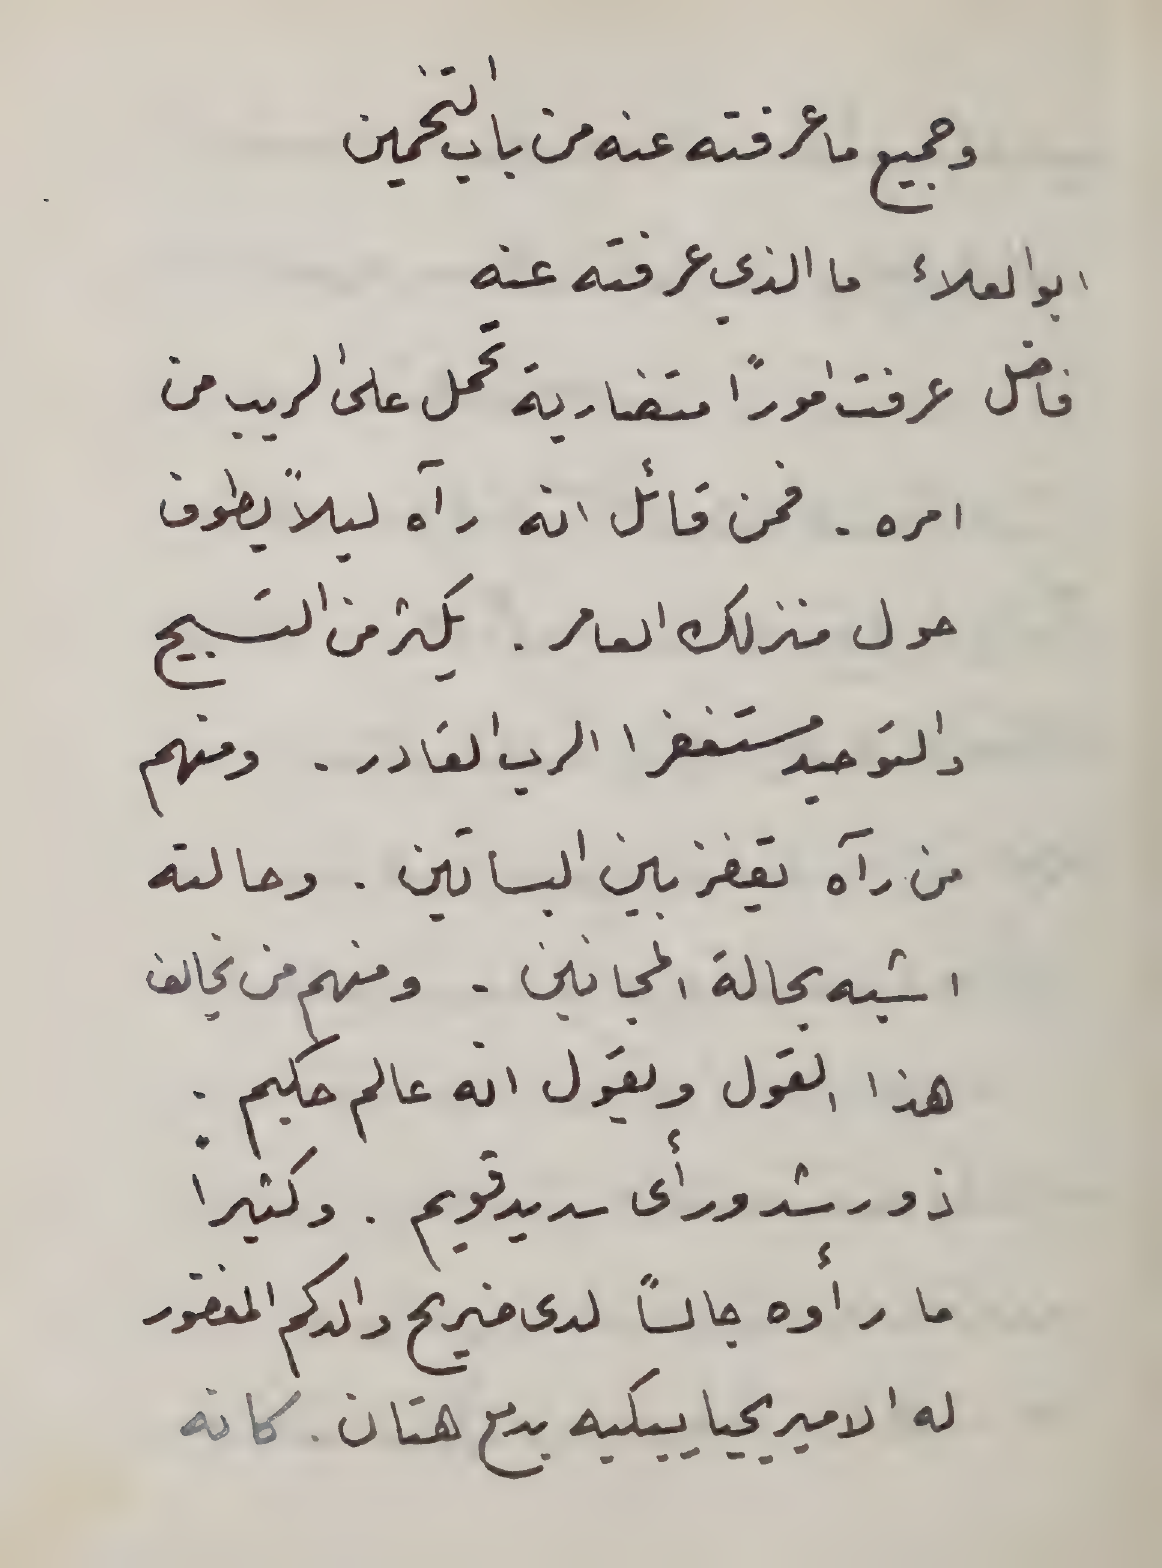 وجميع ما عرفته عنه من باب التخمين
ابو العلاء ما الذي عرفته عنه
فاضل عرفت امورًا متضاربة تحمل على الريب من
امره . فمن قائل انه رآه ليلاً يطوف
حول منزلك العامر . يكثر من التسبيح
والتوحيد مستغفرا الرب القادر . ومنهم
من رآه يقفز بين البساتين . وحالته
اشبه بحالة المجانين . ومنهم من يخالف
هذا القول ويقول انه عالم حكيم .
ذو رشد ورأى سديد قويم . وكثيراً
ما رأوه جالساً لدى ضريح والدكم المغفور
له الامير يحيا يبكيه بدمع هتان . كانه